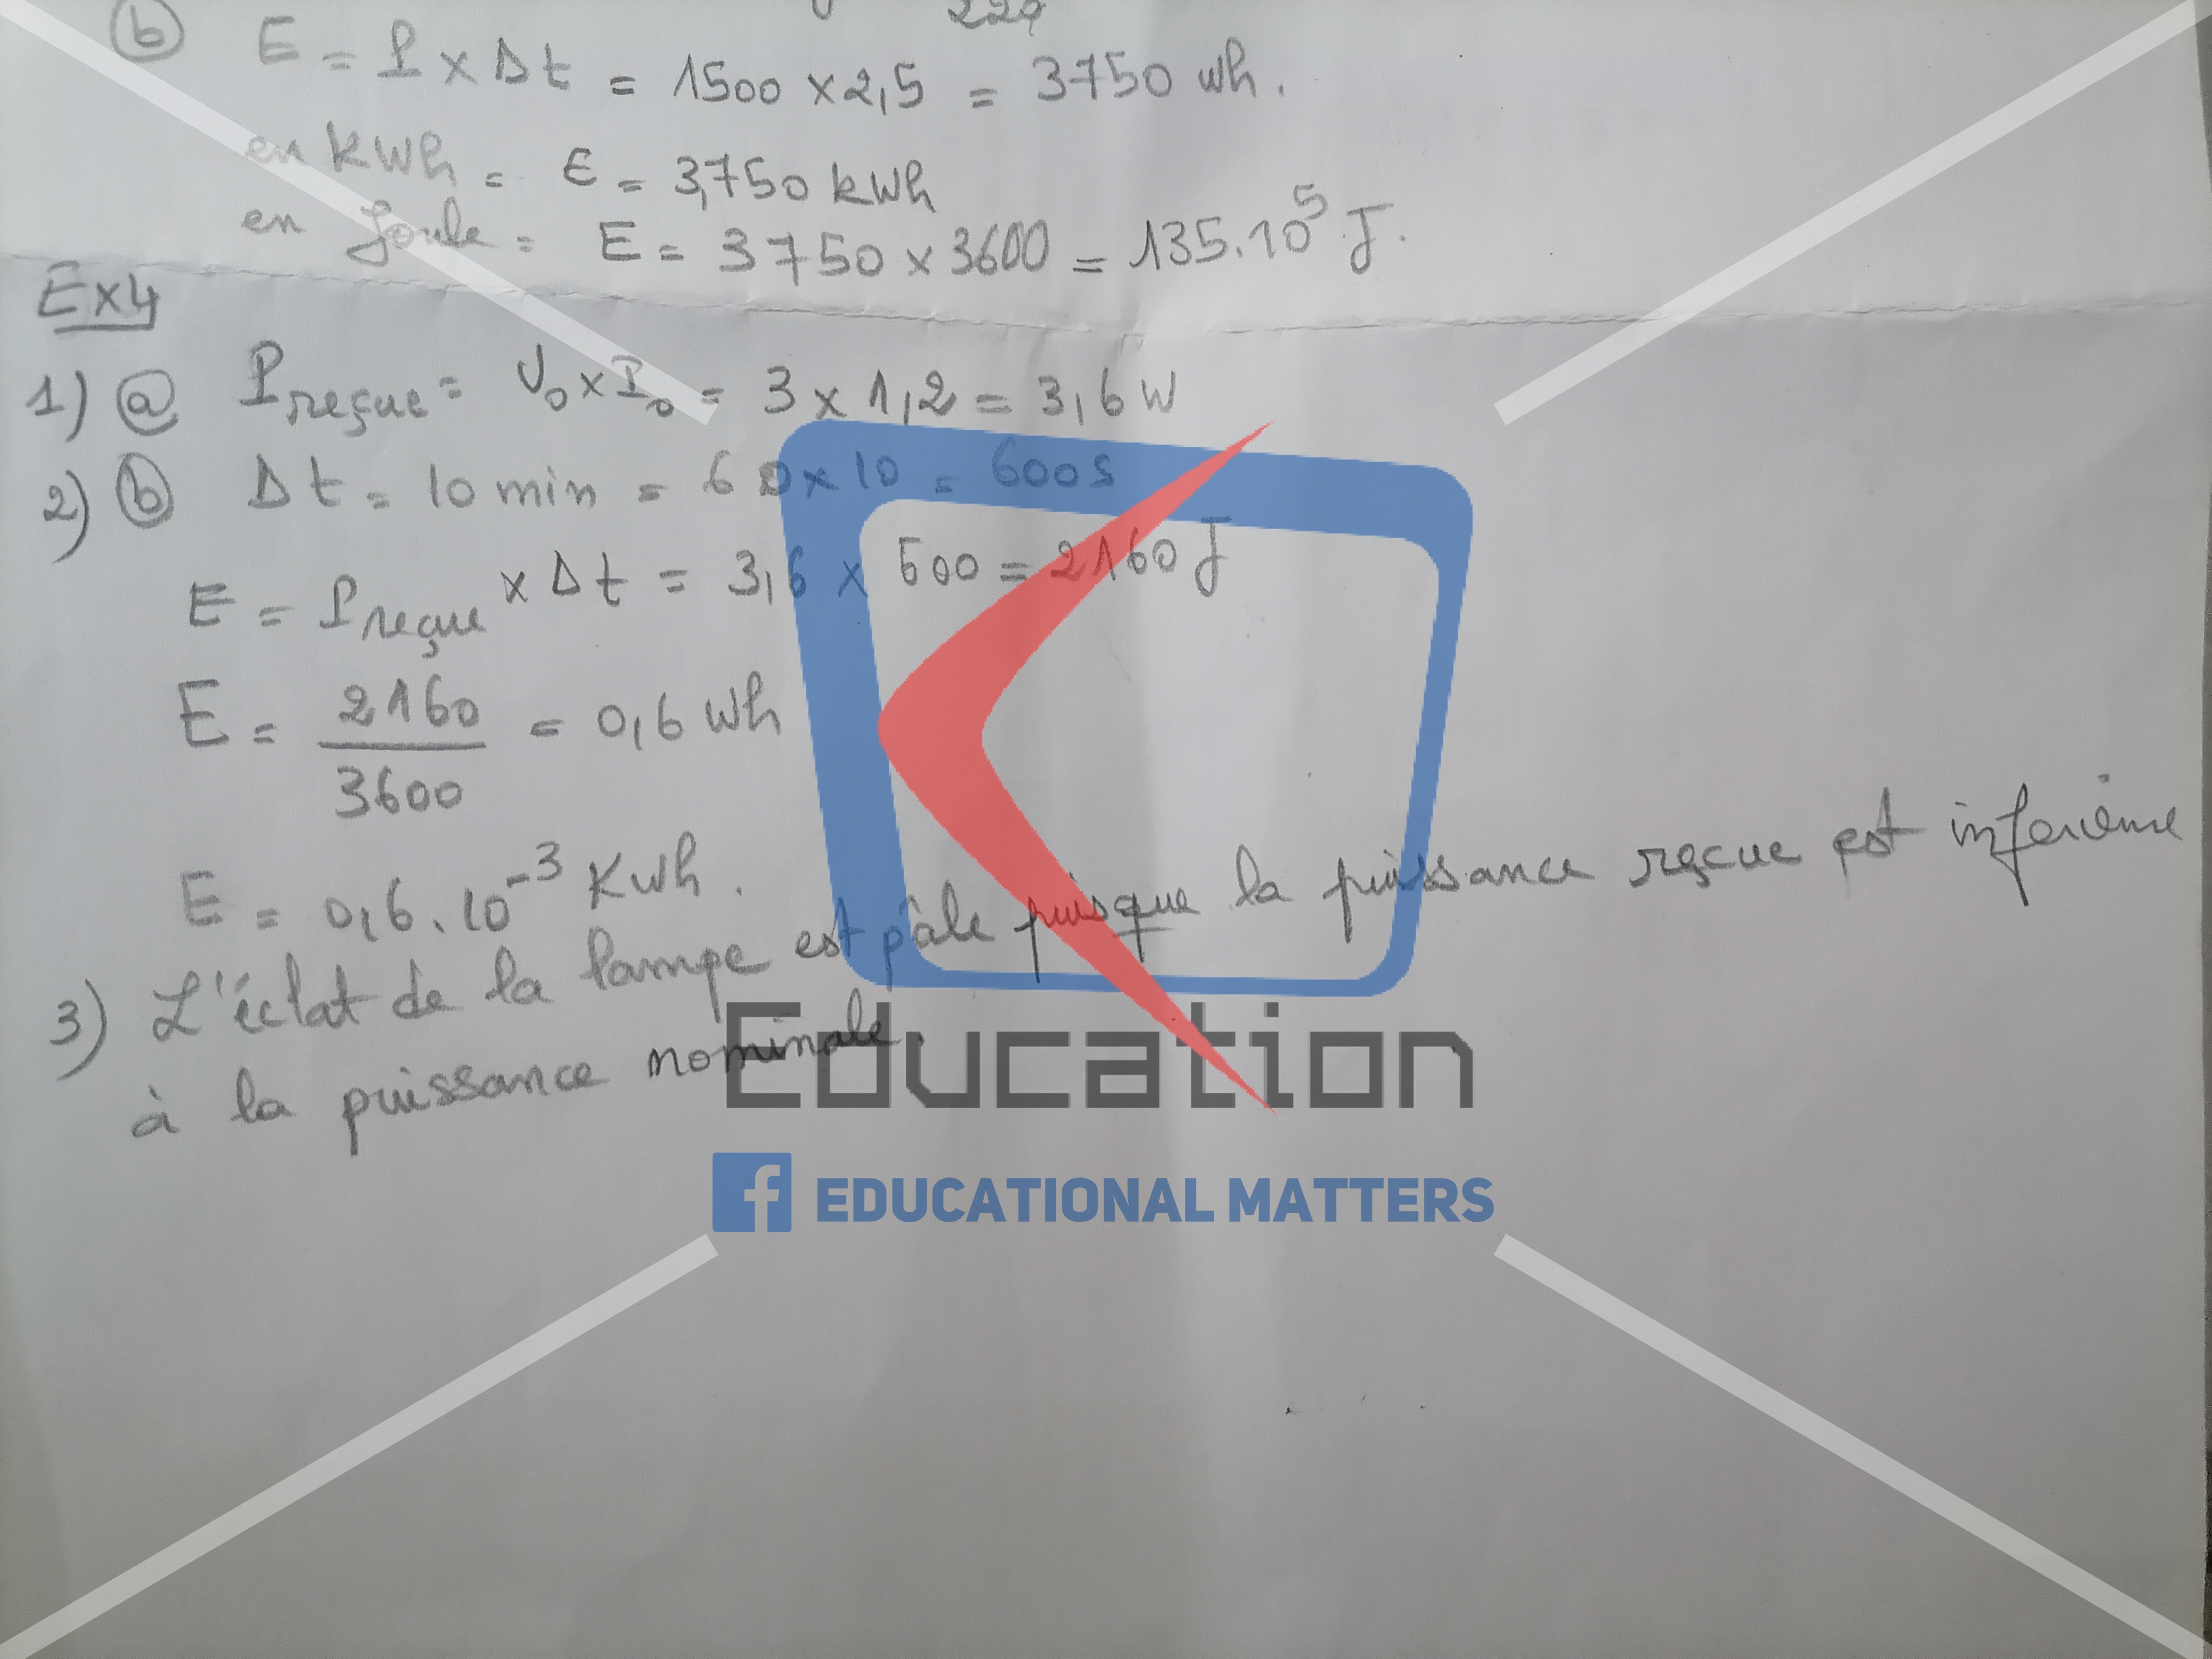 220
b E = P x Δt = 1500 x 2,5 = 3750 Wh.
en kWh = E = 3,750 kWh
en Joule = E = 3750 x 3600 = 135.10⁵ J.
Ex4
1) a Preçue = U₀ x I₀ = 3 x 1,2 = 3,6 W
2) b Δt = 10 min = 60 x 10 = 600 s
E = Preçue x Δt = 3,6 x 600 = 2160 J
E = 2160 / 3600 = 0,6 Wh
E = 0,6 . 10⁻³ KWh.
3) L'éclat de la lampe est pâle puisque la puissance reçue est inférieure
à la puissance nominale.
Education
f EDUCATIONAL MATTERS